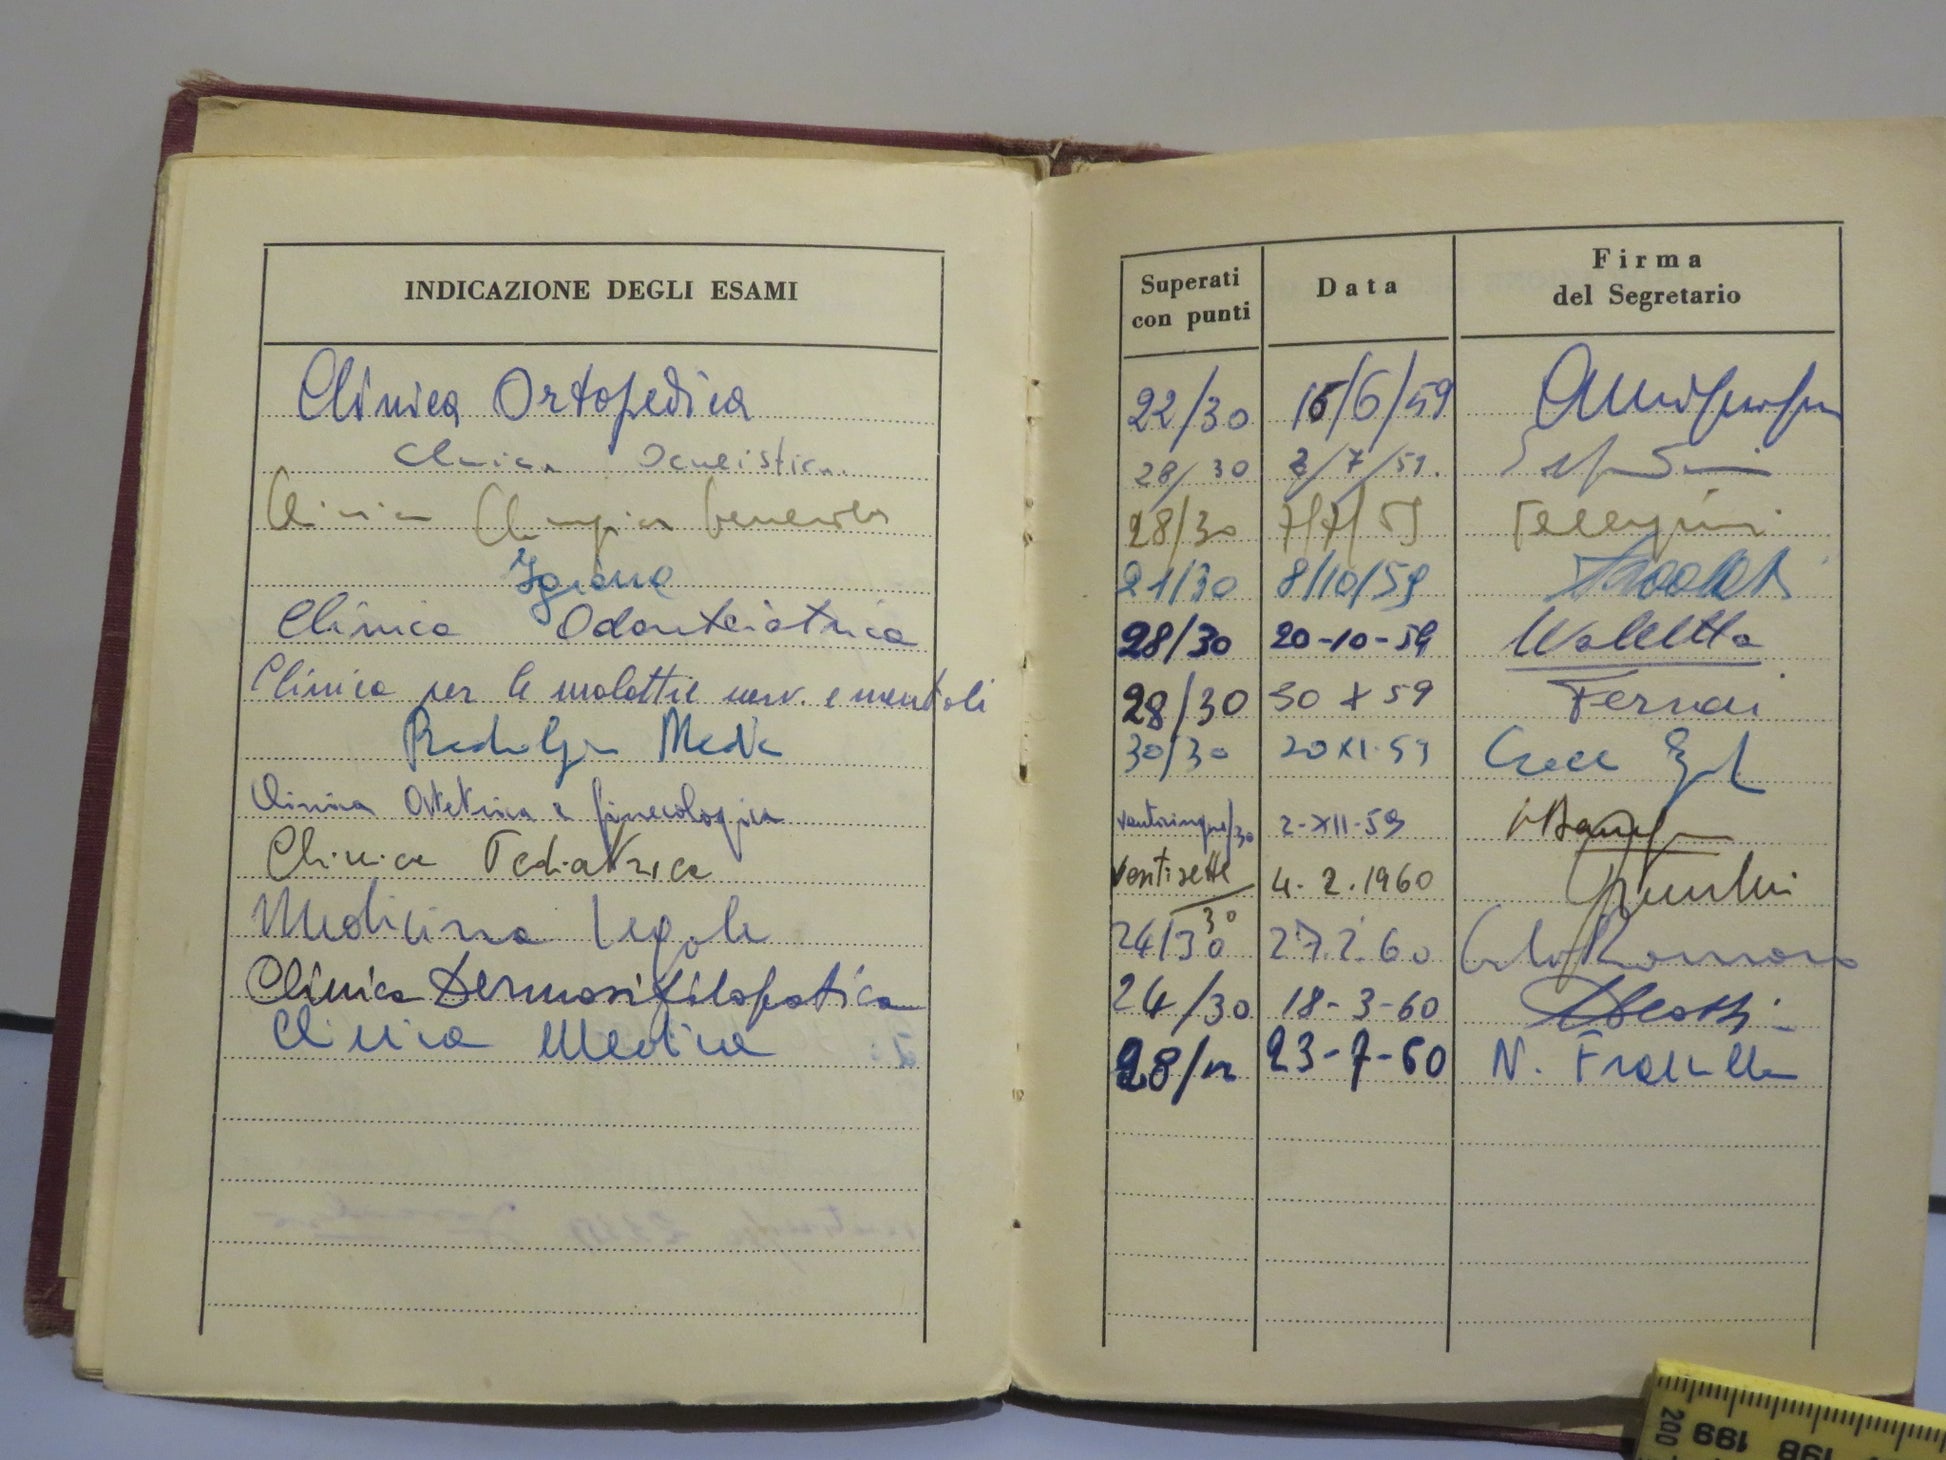 INDICAZIONE DEGLI ESAMI
Superati con punti
Data
Firma del Segretario
Clinica Ortopedica 22/30 /6/59
Clinica Oculistica 28/30 /7/59.
Clinica Chirurgica Generale 28/30 7/7/59 Pellegrini
Igiene 21/30 8/10/59
Clinica Odontoiatrica 28/30 20-10-59
Clinica per le malattie nerv. e mentali 28/30 30 X 59
Radiologia Medica 30/30 20 XI. 59
Clinica Ostetrica e ginecologica venticinque/30 2-XII-59
Clinica Pediatrica Ventisette/30 4.2.1960
Medicina Legale 24/30 27.2.60 Romano
Clinica Dermosifilopatica 24/30 18-3-60
Clinica Medica 28/ 23-7-60 N.
200 199 198